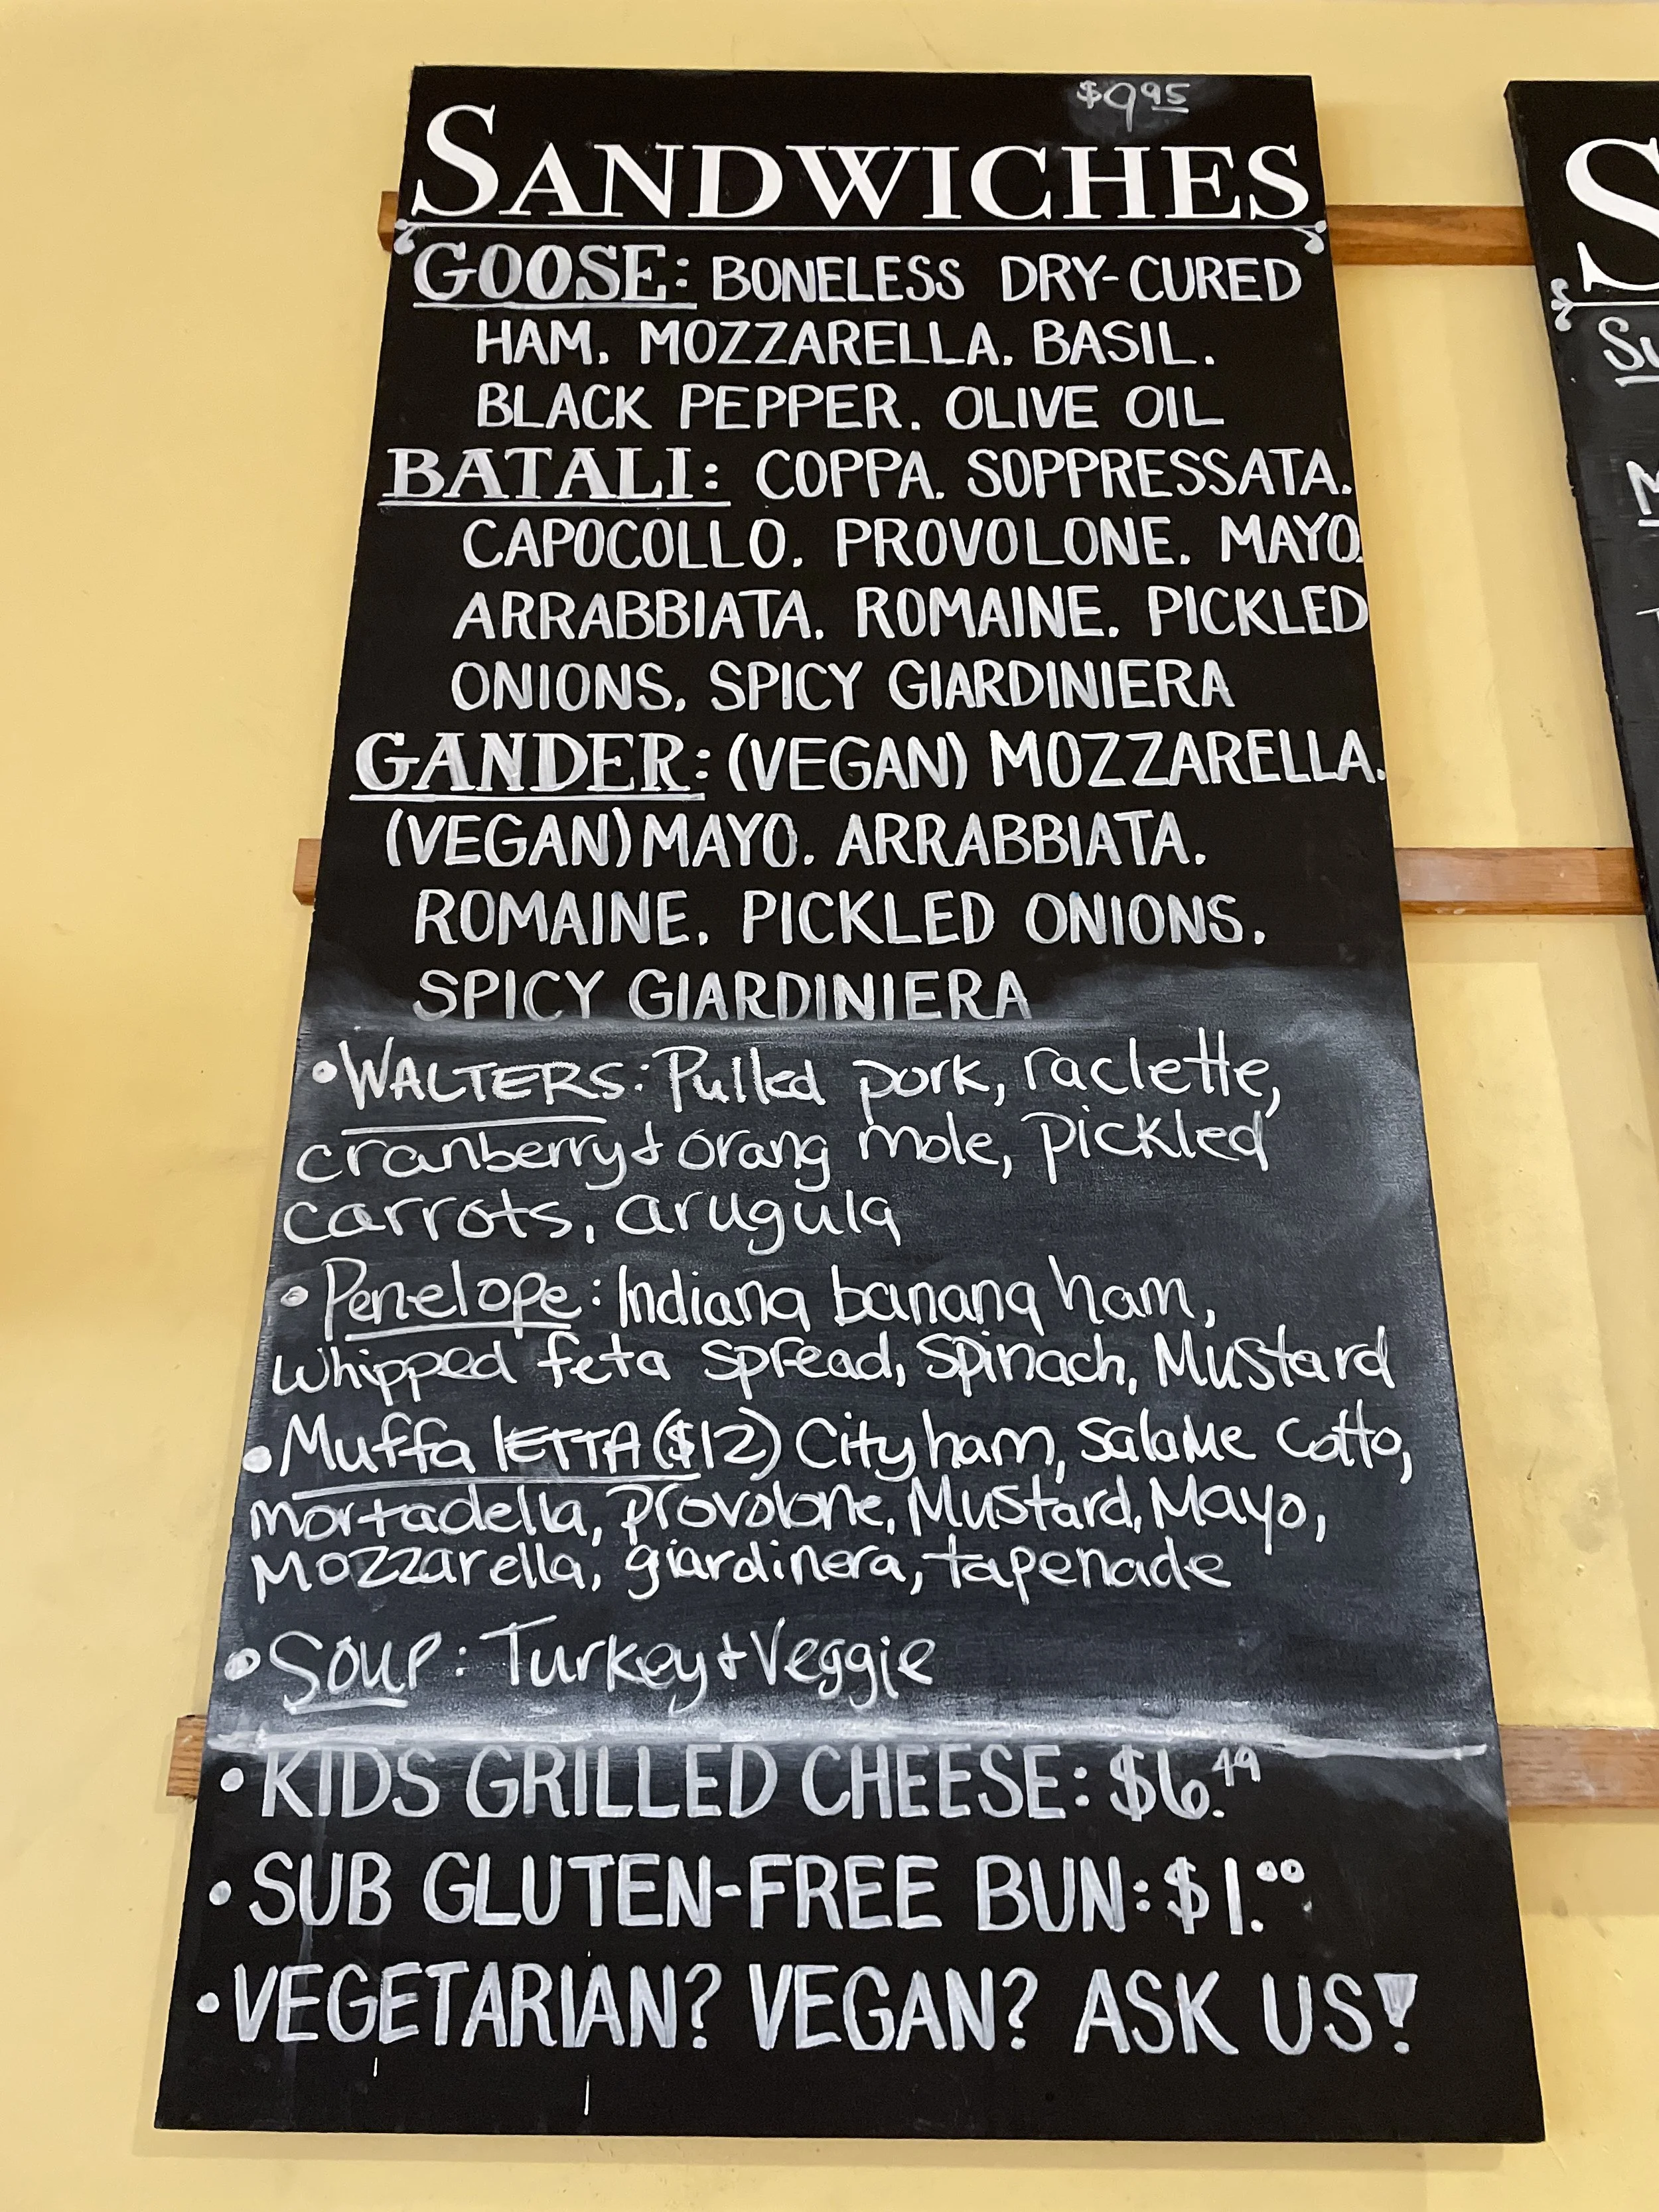 $9.95
SANDWICHES
GOOSE: BONELESS DRY-CURED
HAM. MOZZARELLA. BASIL.
BLACK PEPPER. OLIVE OIL
BATALI: COPPA. SOPPRESSATA.
CAPOCOLLO. PROVOLONE. MAYO.
ARRABBIATA. ROMAINE. PICKLED
ONIONS. SPICY GIARDINIERA
GANDER: (VEGAN) MOZZARELLA.
(VEGAN) MAYO. ARRABBIATA.
ROMAINE. PICKLED ONIONS.
SPICY GIARDINIERA
•WALTERS: Pulled pork, raclette,
cranberry + orang mole, pickled
carrots, arugula
•Penelope: Indiana banana ham,
whipped feta spread, spinach, Mustard
•Muffa lETTA ($12) City ham, Salame Cotto,
mortadella, provolone, Mustard, Mayo,
Mozzarella, giardinera, tapenade
•Soup: Turkey + Veggie
•KIDS GRILLED CHEESE: $6.49
•SUB GLUTEN-FREE BUN: $1.00
•VEGETARIAN? VEGAN? ASK US!
S
Su
M